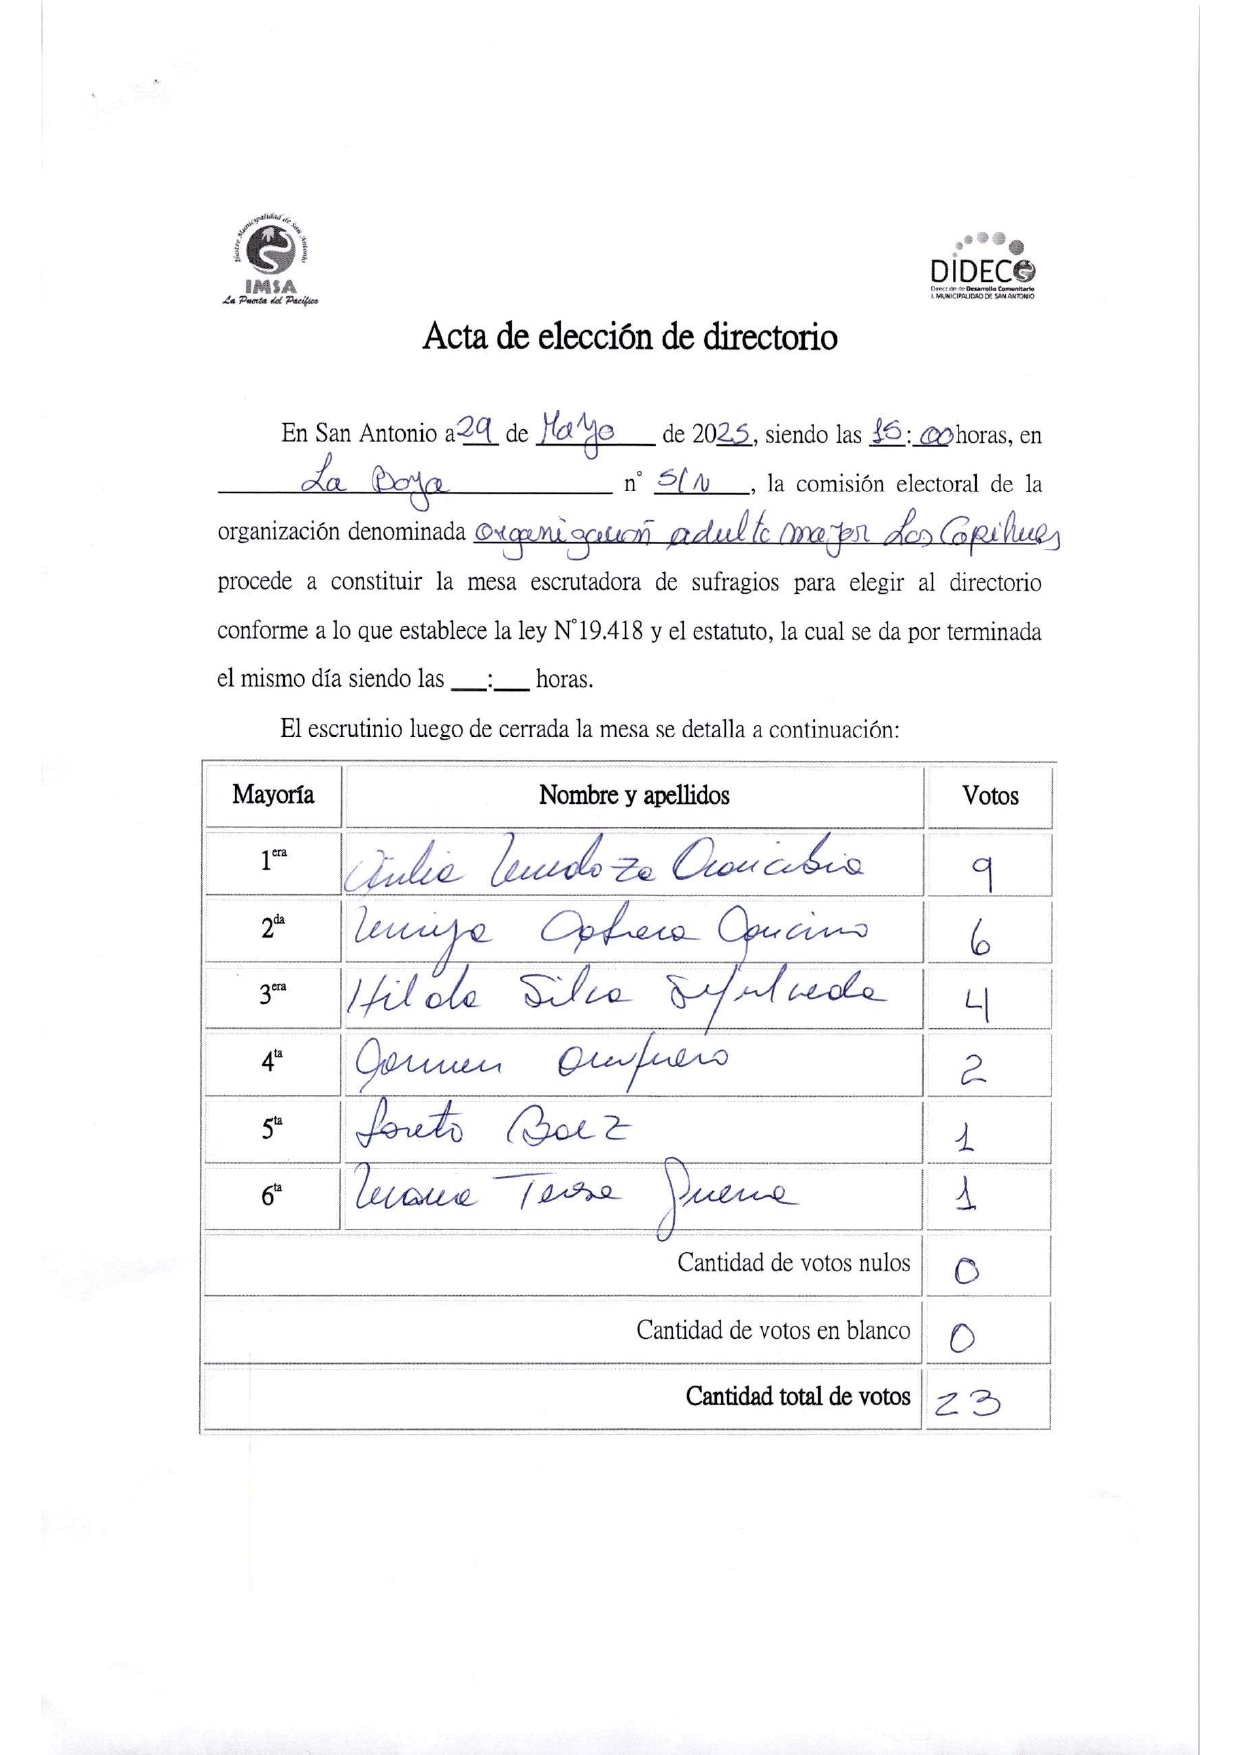 Ilustre Municipalidad de San Antonio
IMSA
La Puerta del Pacífico
DIDECO
Dirección de Desarrollo Comunitario
I. MUNICIPALIDAD DE SAN ANTONIO
Acta de elección de directorio
En San Antonio a 29 de Mayo de 2025, siendo las 15:00 horas, en
La Boya n° S/N, la comisión electoral de la
organización denominada organización adulto mayor Los Copihues
procede a constituir la mesa escrutadora de sufragios para elegir al directorio
conforme a lo que establece la ley N°19.418 y el estatuto, la cual se da por terminada
el mismo día siendo las ___:___ horas.
El escrutinio luego de cerrada la mesa se detalla a continuación:
Mayoría Nombre y apellidos Votos
1era Mendoza 9
2da 6
3era Hilda Silva Sepulveda 4
4ta 2
5ta Loreto Baez 1
6ta Maria Teresa 1
Cantidad de votos nulos 0
Cantidad de votos en blanco 0
Cantidad total de votos 23